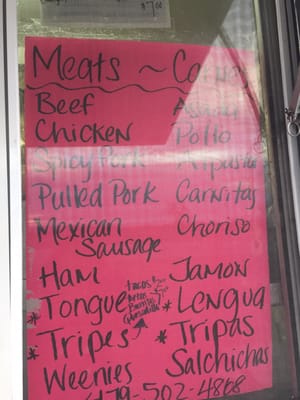 $7.00
Meats ~
Beef
Chicken Pollo
Spicy Pork
Pulled Pork Carnitas
Mexican Sausage Choriso
Ham Jamon
tacos
*Tongue *Lengua
*Tripes *Tripas
Weenies Salchichas
479-502-4868